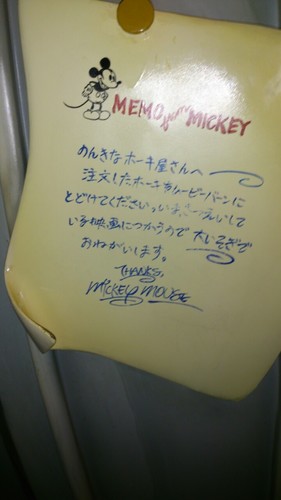 MEMO from MICKEY
のんきなホーキ屋さんへ
注文したホーキをムービーバーンに
とどけてください。いまさつえいして
いる映画につかうので 大いそぎで
おねがいします。
THANKS,
MICKEY MOUSE